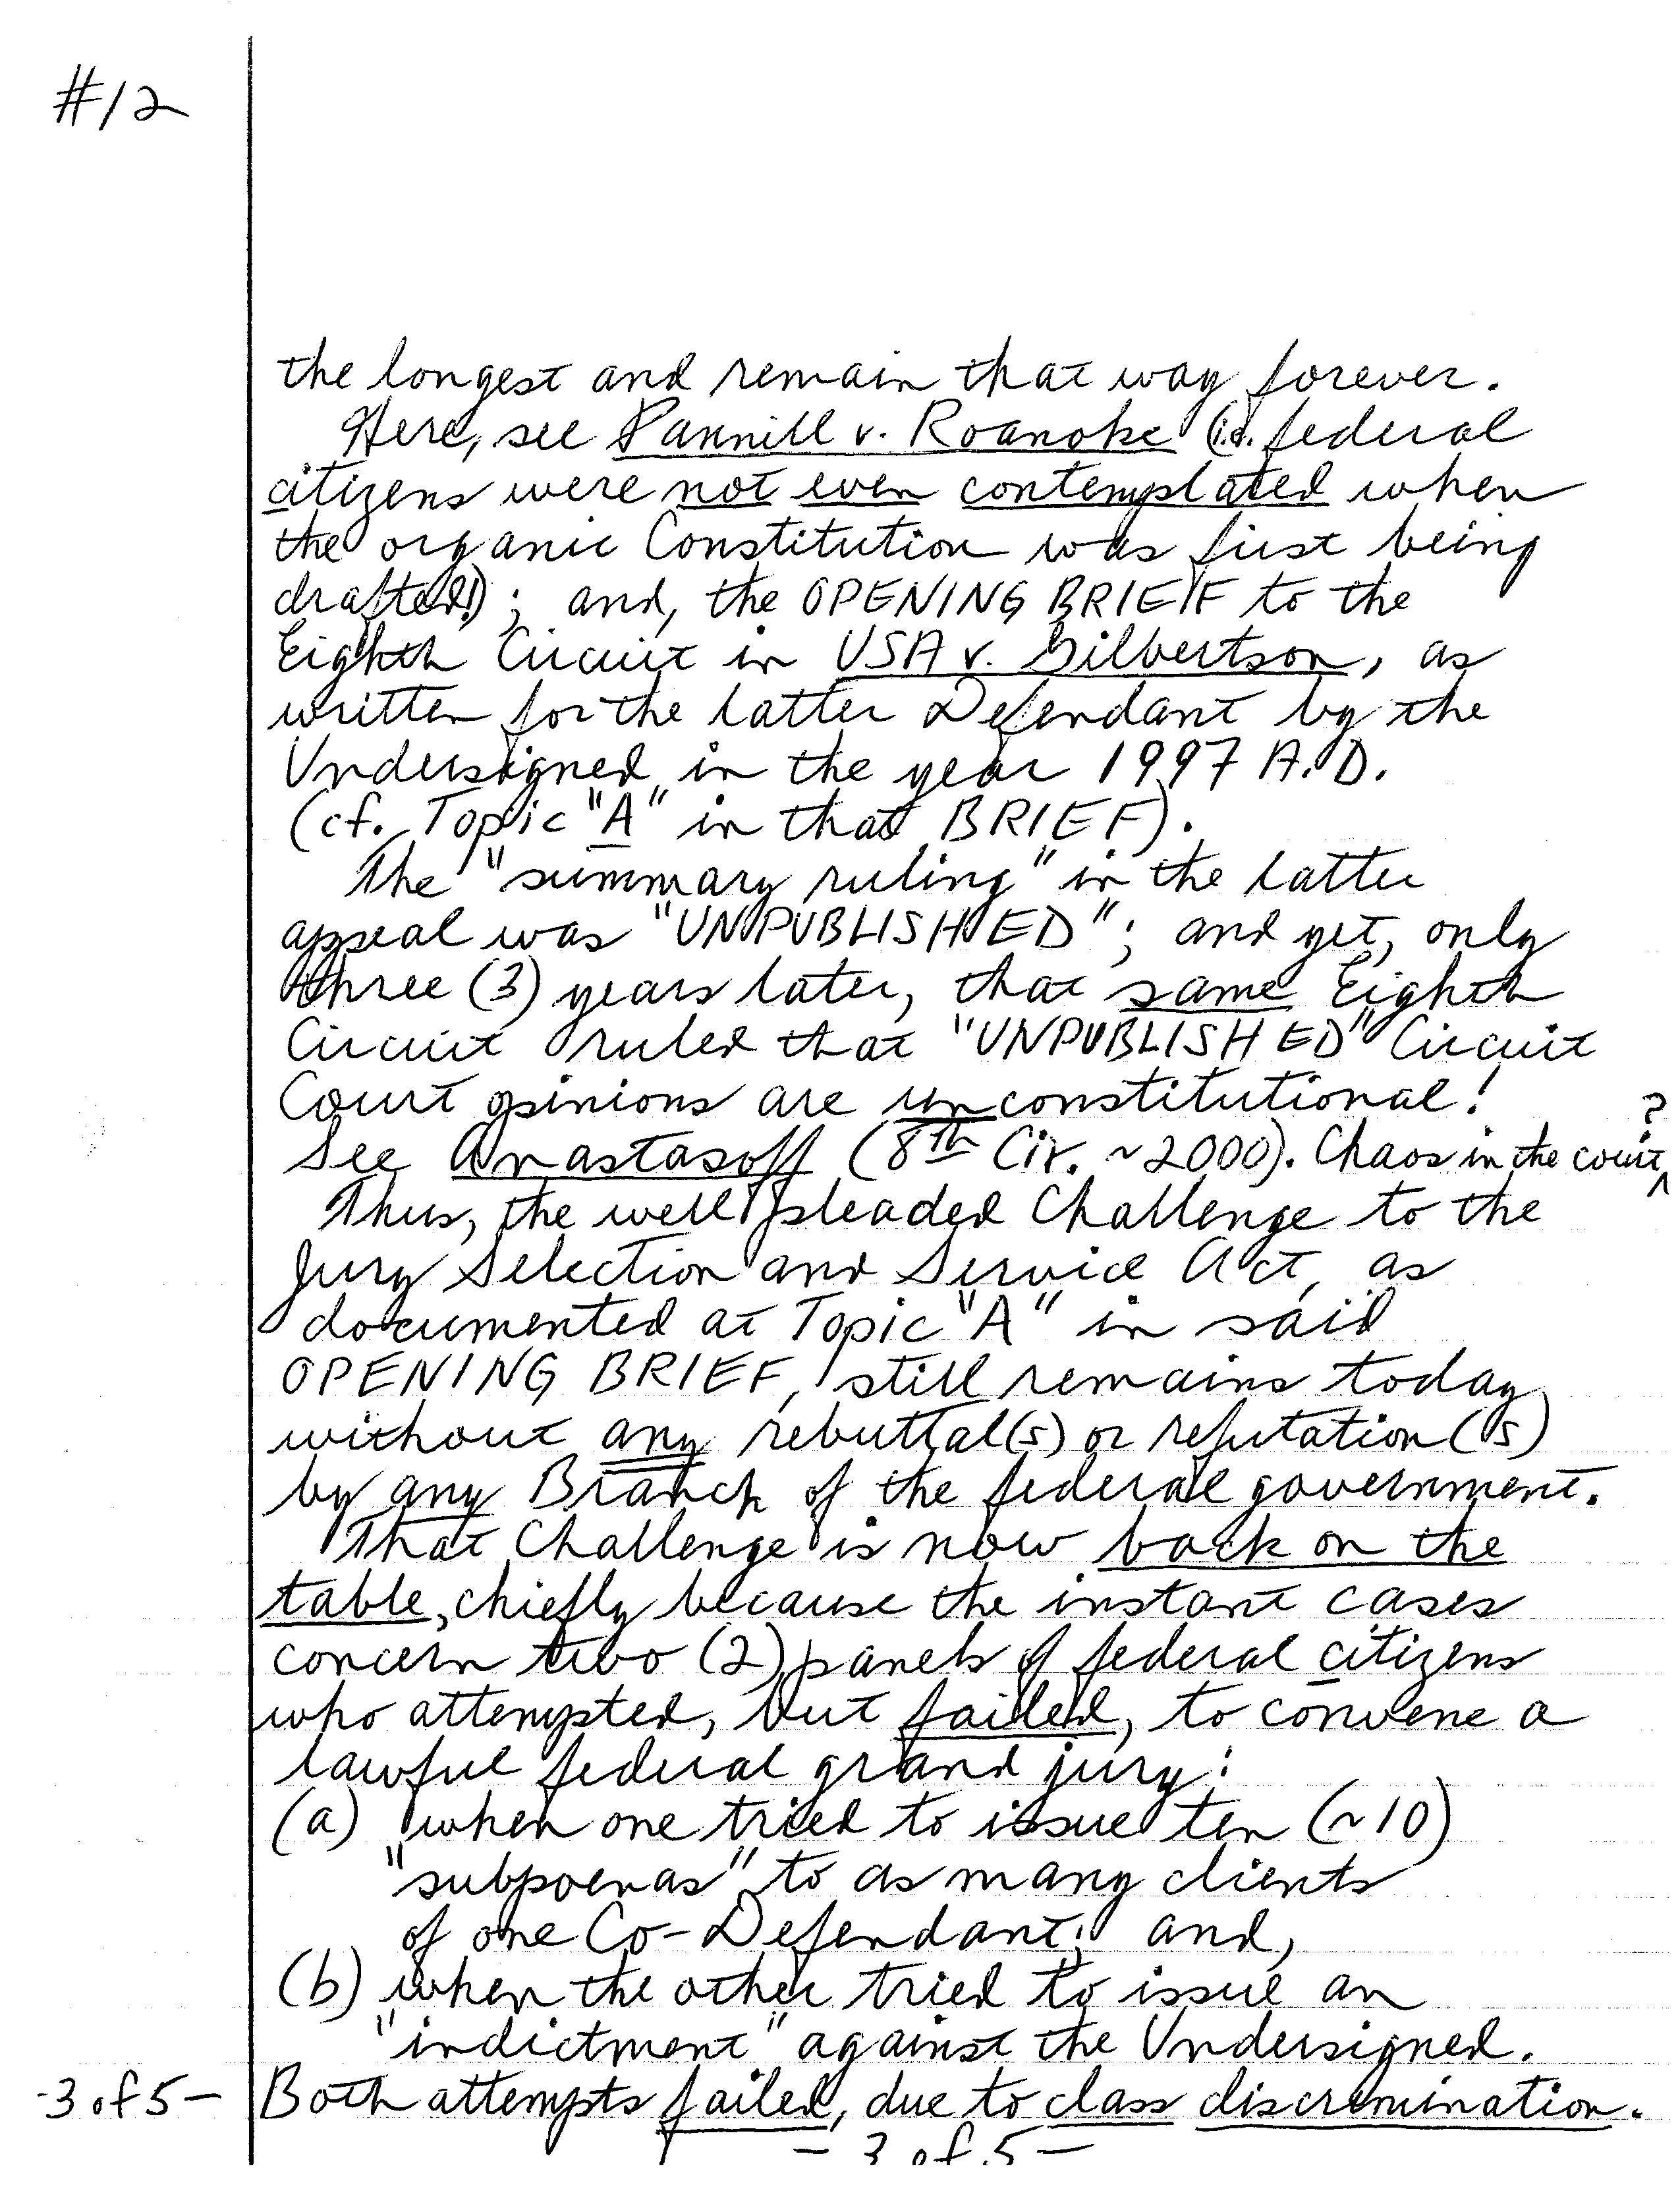 #12
the longest and remain that way forever.
Here, see Pannill v. Roanoke (i.e. federal
citizens were not even contemplated when
the organic Constitution was first being
drafted!); and, the OPENING BRIEF to the
Eighth Circuit in USA v. Gilbertson, as
written for the latter Defendant by the
Undersigned in the year 1997 A.D.
(cf. Topic "A" in that BRIEF).
The "summary ruling" in the latter
appeal was "UNPUBLISHED"; and yet, only
three (3) years later, that same Eighth
Circuit ruled that "UNPUBLISHED" Circuit
Court opinions are unconstitutional!
See Anastasoff (8th Cir. ~2000). Chaos in the court?
Thus, the well pleaded Challenge to the
Jury Selection and Service Act, as
documented at Topic "A" in said
OPENING BRIEF, still remains today
without any rebuttal(s) or refutation(s)
by any Branch of the federal government.
That Challenge is now back on the
table, chiefly because the instant cases
concern two (2) panels of federal citizens
who attempted, but failed, to convene a
lawful federal grand jury:
(a) when one tried to issue ten (~10)
"subpoenas" to as many clients
of one Co-Defendant; and,
(b) when the other tried to issue an
"indictment" against the Undersigned.
-3 of 5- Both attempts failed, due to class discrimination.
- 3 of 5 -